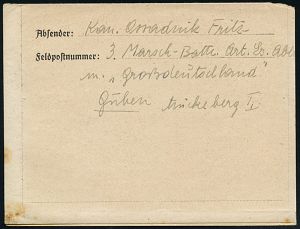 Absender: Kan. Osradnik Fritz
Feldpostnummer: 3. Marsch-Battr. Art. Ers. Abt.
m. „Grossdeutschland"
Guben Mückeberg II